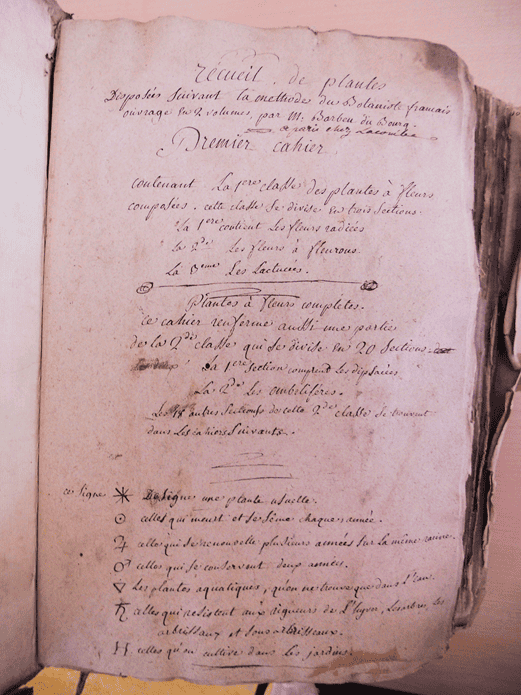 récueil de plantes
Disposées Suivant la methodes du Botaniste français
ouvrage en 2 volumes, par Mr. Barbeu du Bourg
a paris chez Lacombe
Premier cahier
contenant La 1ere classe des plantes à fleurs
composées. cette classe se divise en trois sections.
La 1ere contient Les fleurs radiées
La 2de Les fleurs à fleurons
La 3eme Les Lactucées.
Plantes à fleurs complétes.
Ce cahier renferme aussi une partie
de la 2de classe qui se divise en 20 sections.
La 1ere section comprent Les dipsacées
La 2de Les ombeliferes.
Les autres sections de cette 2de classe se trouvent
dans Les cahiers suivants.
ce signe ⚹ Designe une plante usuelle.
☉ celles qui meurt et se sême chaque année.
♃ celles qui se renouvelle plusieurs années sur la même racine.
♂ celles qui se conservent deux années.
▽ Les plantes aquatiques, qu'on ne trouve que dans L'eau.
♄ celles qui resistent aux rigueurs de L'hyver, Les arbres, les
arbrissaux et sous arbrisseaux.
H celles qu'on cultive dans les jardins.